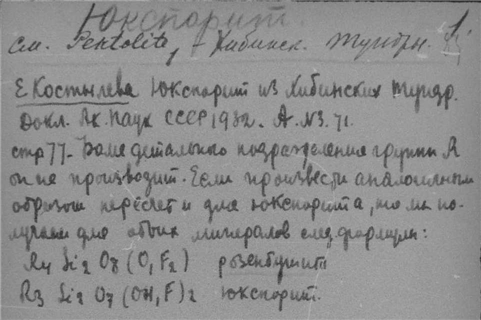 Юкспорит.
см. Pektolite, - Хибинск. Тундры. Si
Е Костылева Юкспорит из Хибинских тундр.
Докл. Ак. Наук СССР 1932. А. №3. 71.
стр 77. Более детально подразделение группы R
он не производит. Если произвести аналогичным
образом пересчет и для юкспорита, то мы по-
лучаем для обоих минералов след формулы:
R4 Si2 O8 (O, F2) розенбушит
R3 Si2 O7 (OH, F)2 Юкспорит.